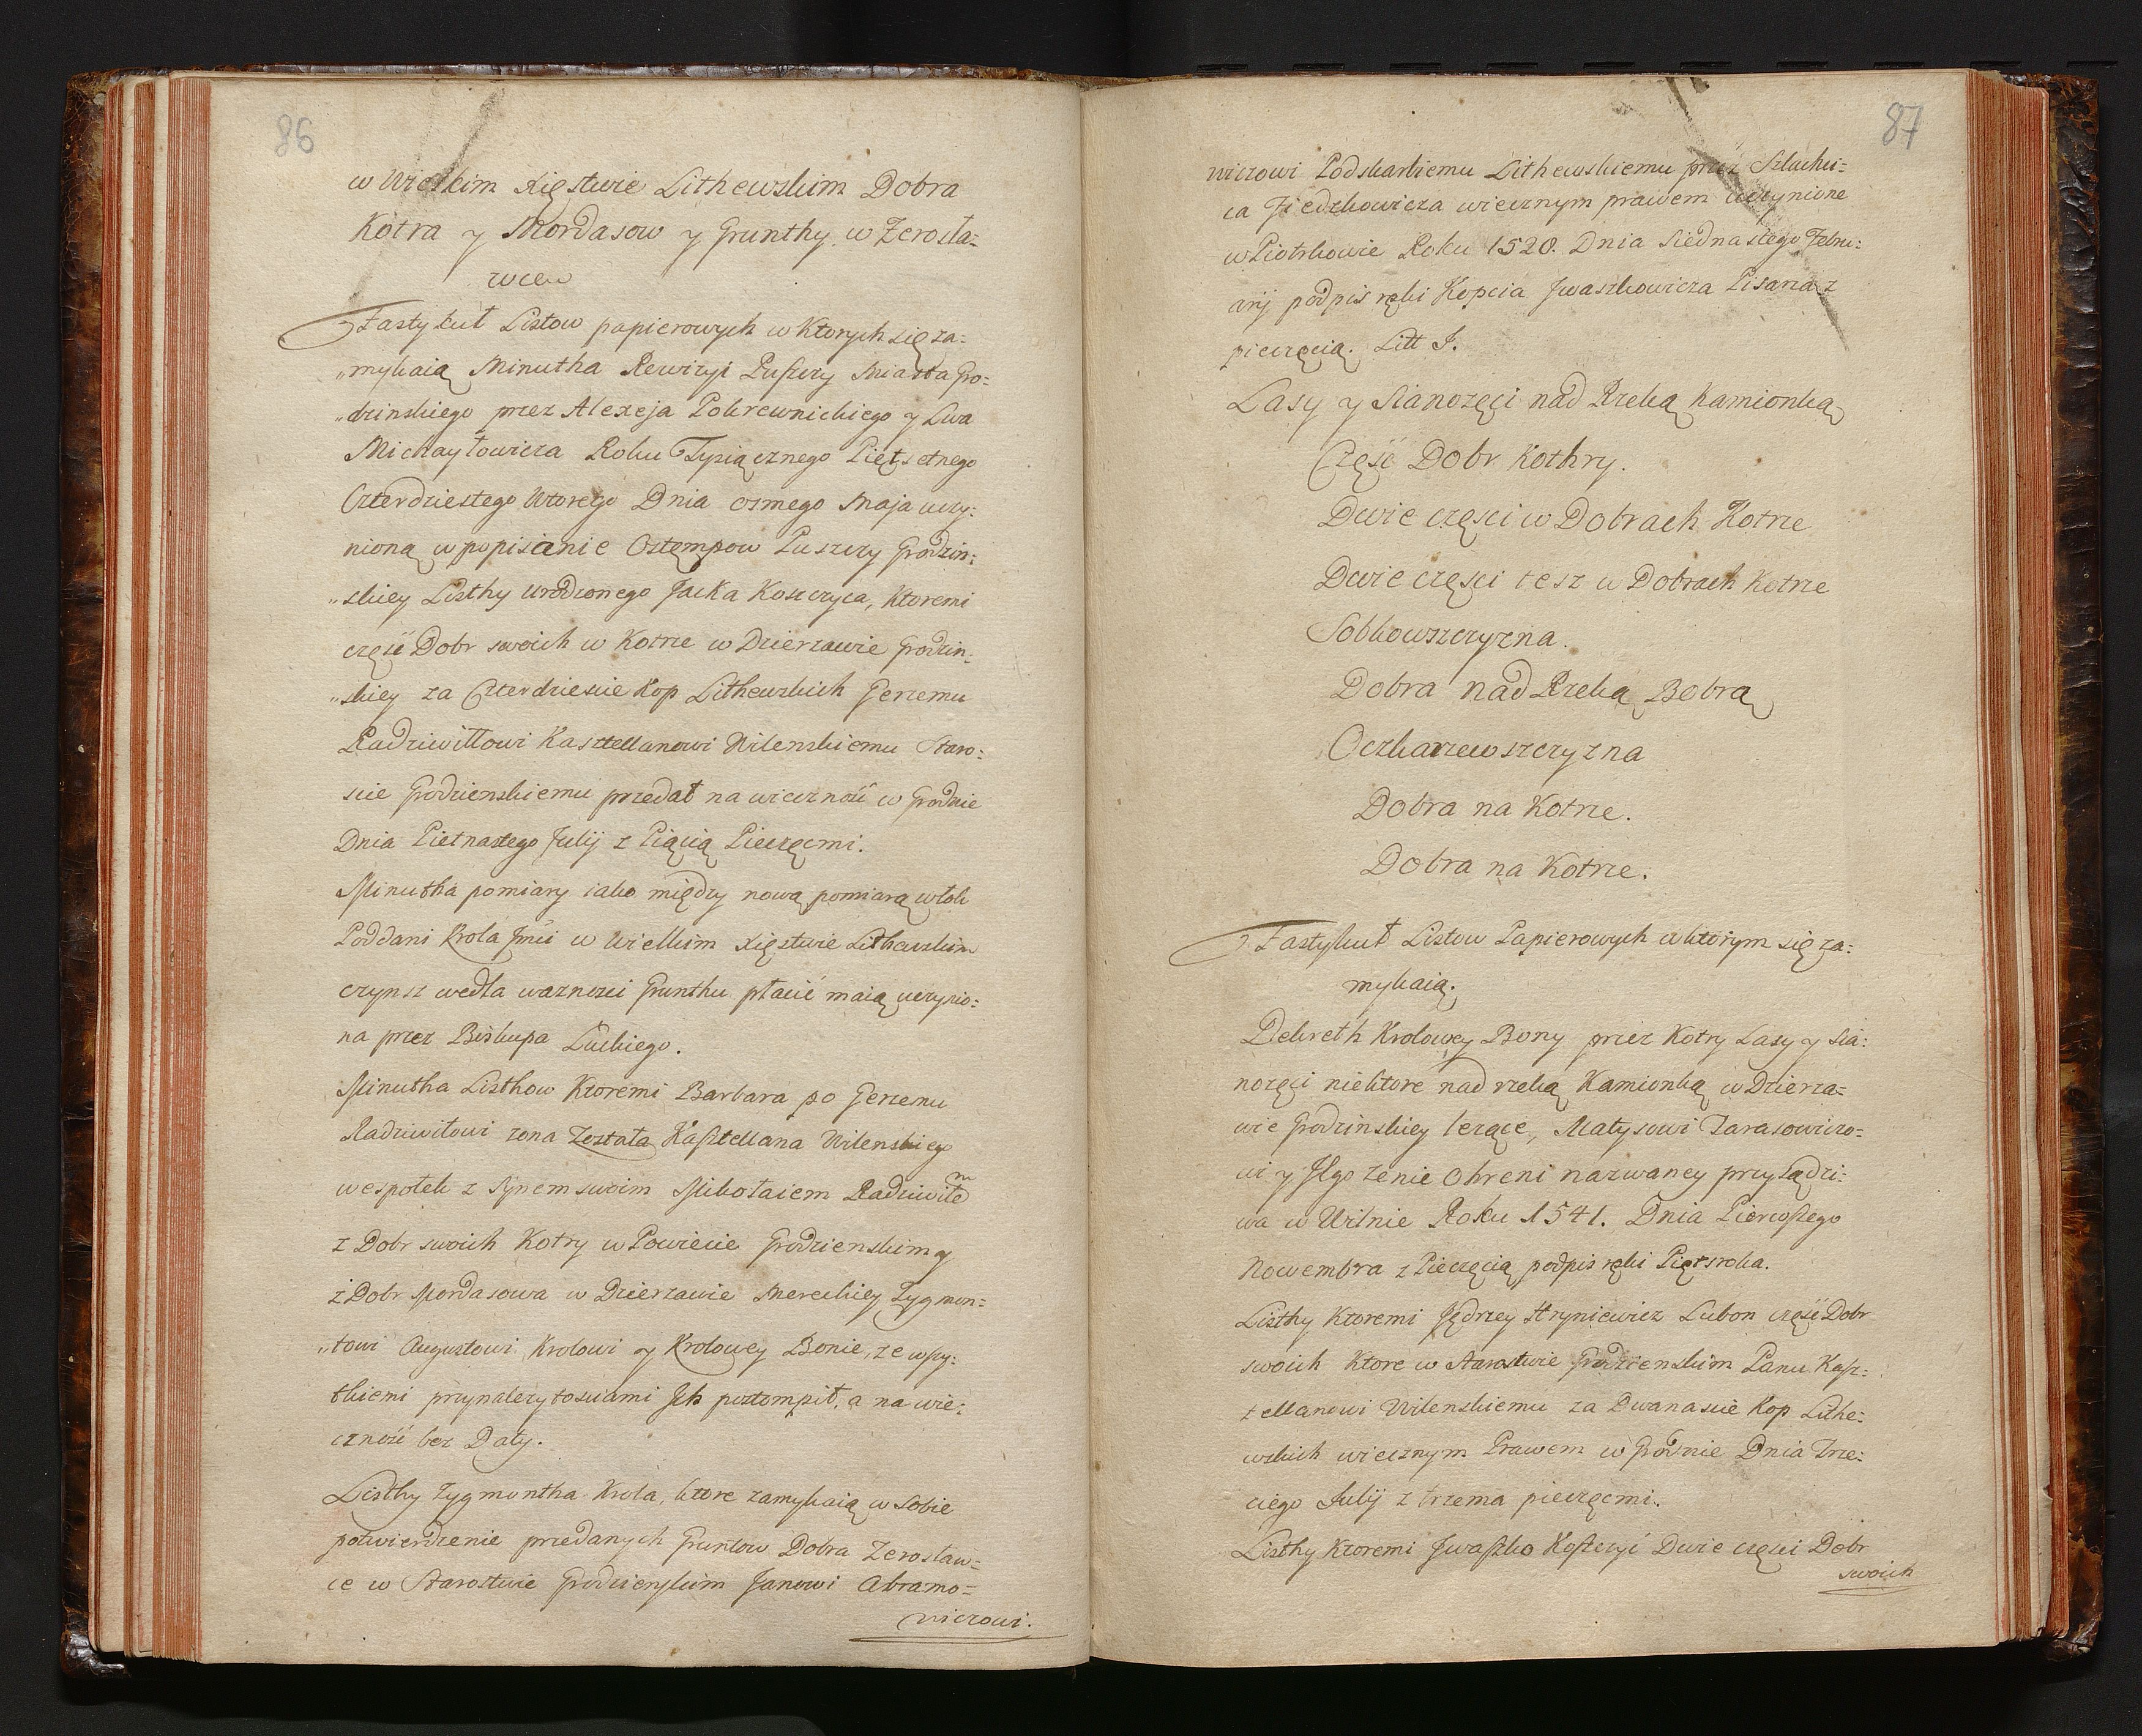 86
w Wielkim Xięstwie Lithewskim Dobra
Kotra y Mordasow y Grunthy w Zerosta=
wcew
Fastykuł Listow papierowych w Ktorych się za=
„mykaią Minutha Rewizyi Puszczy Miasta Gro=
„dzinskiego przez Alexeja Pokrewnickiego y Lwa
Michayłowicza Roku Tysiącznego Piętsetnego
Czterdziestego Wtorego Dnia osmego Maja uczy=
nioną w popisanie Ostempow Puszczy Grodzin=
„skiey Listhy urodzonego Jacka Koszczyca, Ktoremi
część Dobr swoich w Kotrze w Dzierzawie Grodzin=
„skiey za Czterdziescie Kop Lithewskich Jerzemu
Radziwiłłowi Kasztellanowi Wilenskiemu Staro=
scie Grodzienskiemu przedał na wieczność w Grodnie
Dnia Pietnastego Julij z Piącią Pieczęcmi.
Minutha pomiary iako między nową pomiarą włok
Poddani Krola Jmći w Wielkim Xięstwie Lithewskim
czynsz wedła waznosci Grunthu płacić maią uczynio=
na przez Biskupa Łuckiego.
Minutha Listhow Ktoremi Barbara po Jerzemu
Radziwiłowi zona Została Kasztellana Wilenskiego
wespołek z Synem swoim Mikołaiem Radziwiłem
z Dobr swoich Kotry w Powiecie Grodzienskim y
z Dobr Mordasowa w Dzierzawie Mereckiey Zygmon=
„towi Augustowi Krolowi y Krolowey Bonie, ze wszy=
tkiemi przynalezytosciami Ich postompił, a na wie=
czność bez Daty.
Listhy Zygmontha Krola, ktore zamykaią w Sobie
potwierdzenie przedanych Gruntow Dobra Zerosław=
ce w Starostwie Grodzienskim Janowi Abramo=
wiczowi.
87
wiczowi Podskarbiemu Lithewskiemu przez Szlachci=
ca Fiedzkowicza wiecznym prawem uczynione
w Piotrkowie Roku 1528. Dnia Siednastego Febru=
arij podpis ręki Kopcia Jwaszkowicza Pisarza z
pieczęcią. Litt J.
Lasy y Sianozęci nad Rzeką Kamionką
Część Dobr Kothry.
Dwie części w Dobrach Kotrze
Dwie części tesz w Dobrach Kotrze
Sobkowszczyzna.
Dobra nad Rzeką Bobrą
Oczkarzewszczyzna
Dobra na Kotrze.
Dobra na Kotrze.
Fastykuł Listow Papierowych w ktorym się za=
mykaią.
Dekreth Krolowey Bony przez Kotry Lasy y Sia=
nozęci niektore nad rzeką Kamionką w Dzierza=
wie Grodzinskiey lezące, Matysowi Tarasowiczo=
wi y Jego zenie Ohreni nazwaney przysądzi=
wa w Wilnie Roku 1541. Dnia Pierwszego
Nowembra z Pieczęcią podpis ręki Piętsroka.
Listhy Ktoremi Jędrzey Hryniewicz Lubon część Dobr
swoich Ktore w Starostwie Grodzienskim Panu Kasz=
tellanowi Wilenskiemu za Dwanascie Kop Lithe=
wskich wiecznym Prawem w Grodnie Dnia Trze=
ciego Julij z trzema pieczęcmi.
Listhy Ktoremi Jwaszko Koszczyć Dwie części Dobr
swoich